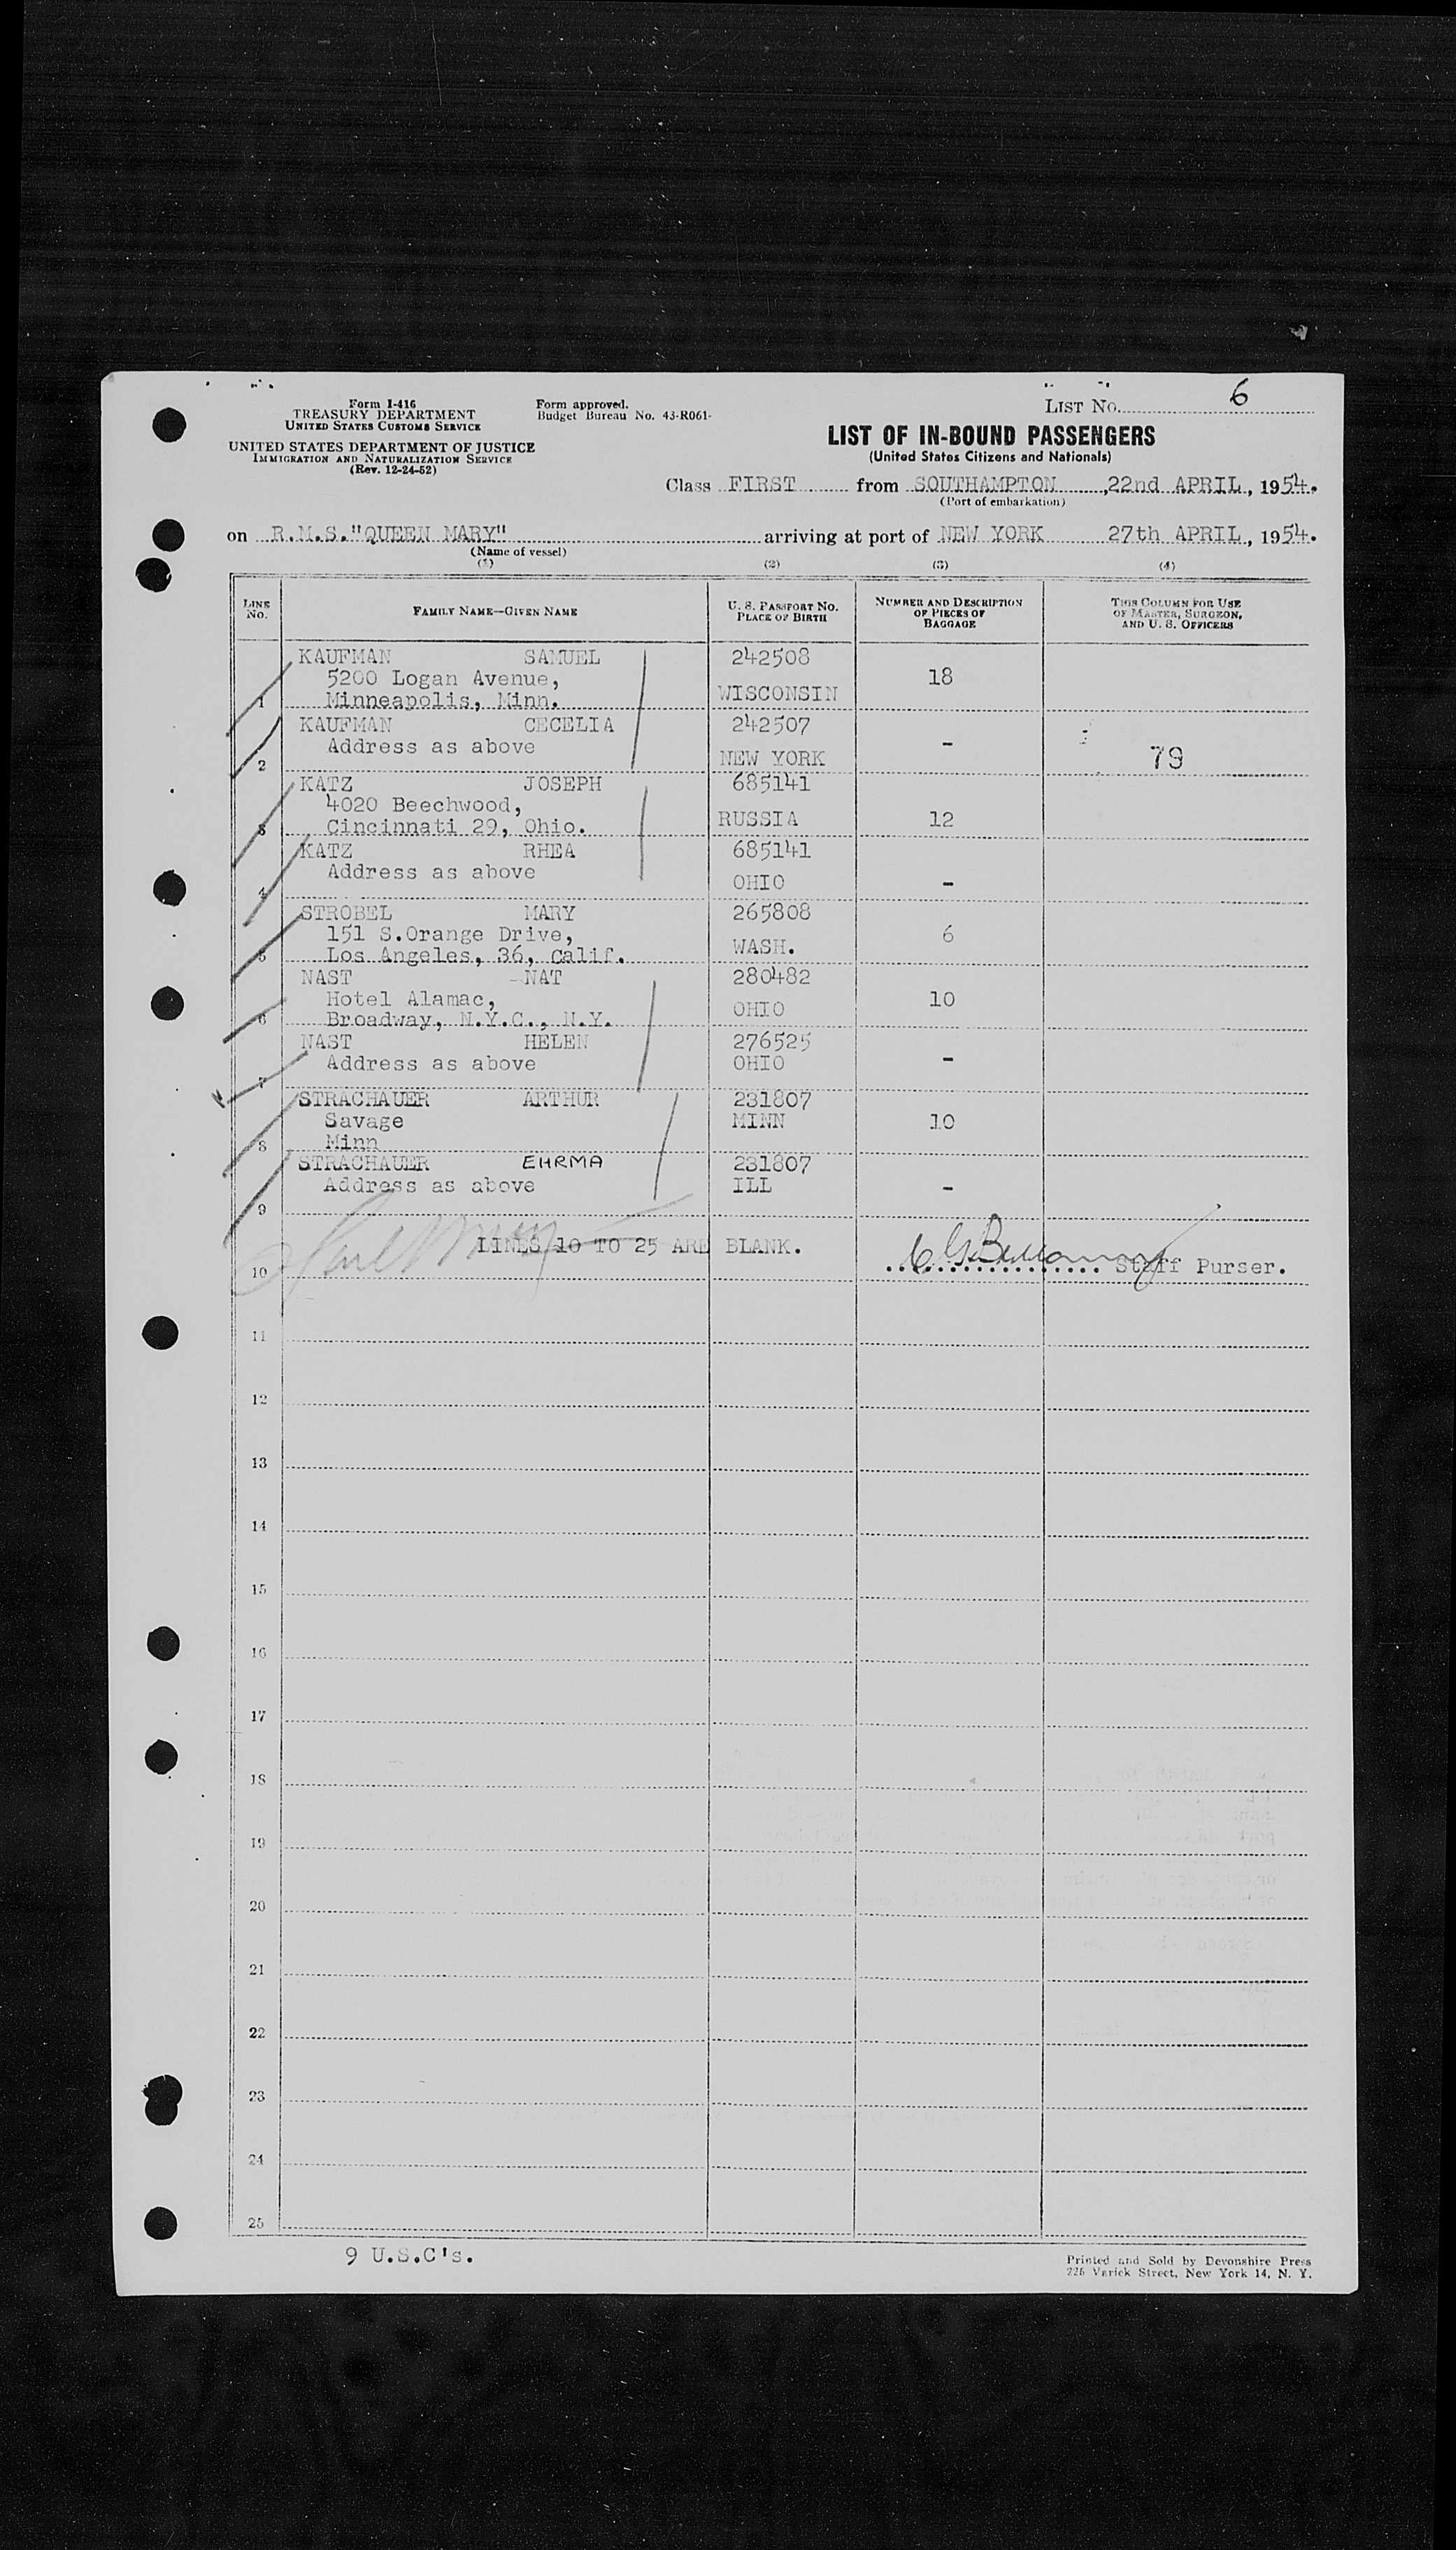 Form I-416
TREASURY DEPARTMENT
UNITED STATES CUSTOMS SERVICE
UNITED STATES DEPARTMENT OF JUSTICE
IMMIGRATION AND NATURALIZATION SERVICE
(Rev. 12-24-52)
Form approved.
Budget Bureau No. 43-R061-
LIST No. 6
LIST OF IN-BOUND PASSENGERS
(United States Citizens and Nationals)
Class FIRST from SOUTHAMPTON, 22nd APRIL, 1954.
(Port of embarkation)
on R.M.S."QUEEN MARY" arriving at port of NEW YORK 27th APRIL, 1954.
(Name of vessel)
(1) (2) (3) (4)
LINE No. FAMILY NAME—GIVEN NAME U. S. PASSPORT No. PLACE OF BIRTH NUMBER AND DESCRIPTION OF PIECES OF BAGGAGE THIS COLUMN FOR USE OF MASTER, SURGEON, AND U. S. OFFICERS
KAUFMAN SAMUEL 242508
5200 Logan Avenue, 18
1 Minneapolis, Minn. WISCONSIN
KAUFMAN CECELIA 242507
Address as above -
2 NEW YORK 79
KATZ JOSEPH 685141
4020 Beechwood,
3 Cincinnati 29, Ohio. RUSSIA 12
KATZ RHEA 685141
Address as above
4 OHIO -
STROBEL MARY 265808
151 S.Orange Drive, 6
5 Los Angeles, 36, Calif. WASH.
NAST NAT 280482
Hotel Alamac, 10
6 Broadway, N.Y.C., N.Y. OHIO
NAST HELEN 276525
Address as above OHIO -
7
STRACHAUER ARTHUR 231807
Savage MINN 10
8 Minn
STRACHAUER EHRMA 231807
Address as above ILL -
9
LINES 10 TO 25 ARE BLANK.
10 Staff Purser.
11
12
13
14
15
16
17
18
19
20
21
22
23
24
25
9 U.S.C's.
Printed and Sold by Devonshire Press
226 Varick Street, New York 14, N. Y.